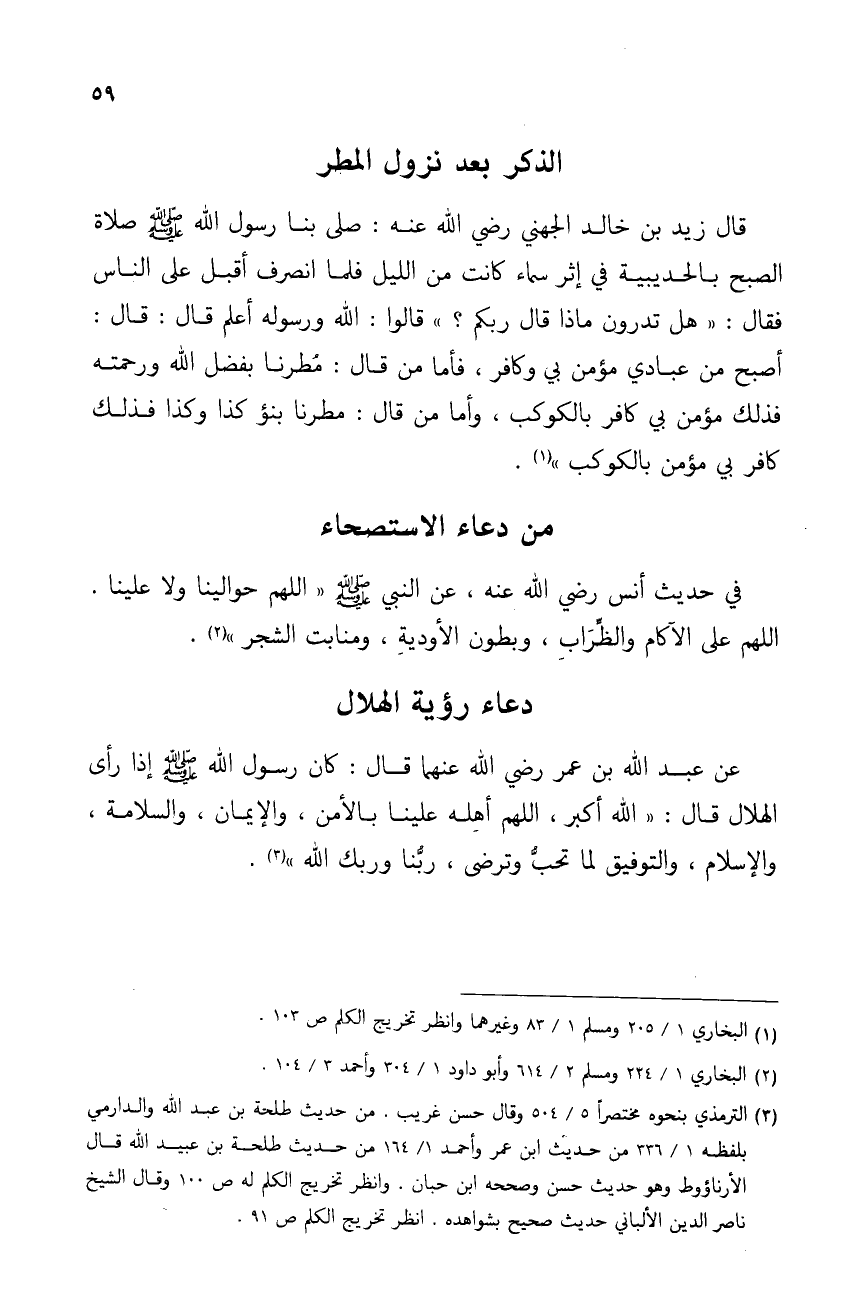 ٥٩
الذكر بعد نزول المطر
قال زيد بن خالد الجهني رضي الله عنه : صلى بنا رسول الله ﷺ صلاة
الصبح بالحديبية في إثر سماء كانت من الليل فلما انصرف أقبل على الناس
فقال : « هل تدرون ماذا قال ربكم ؟ » قالوا : الله ورسوله أعلم قال : قال :
أصبح من عبادي مؤمن بي وكافر ، فأما من قال : مُطرنا بفضل الله ورحمته
فذلك مؤمن بي كافر بالكوكب ، وأما من قال : مطرنا بنؤ كذا وكذا فذلك
كافر بي مؤمن بالكوكب »(١) .
من دعاء الاستصحاء
في حديث أنس رضي الله عنه ، عن النبي ﷺ « اللهم حوالينا ولا علينا .
اللهم على الآكام والظِّرَابِ ، وبطون الأوديةِ ، ومنابت الشجر »(٢) .
دعاء رؤية الهلال
عن عبد الله بن عمر رضي الله عنهما قال : كان رسول الله ﷺ إذا رأى
الهلال قال : « الله أكبر ، اللهم أهِله علينا بالأمن ، والإيمان ، والسلامة ،
والإسلام ، والتوفيق لما تحبُّ وترضى ، ربُّنا وربك الله »(٣) .
(١) البخاري ١ / ٢٠٥ ومسلم ١ / ٨٣ وغيرهما وانظر تخريج الكلم ص ١٠٣ .
(٢) البخاري ١ / ٢٢٤ ومسلم ٢ / ٦١٤ وأبو داود ١ / ٣٠٤ وأحمد ٣ / ١٠٤ .
(٣) الترمذي بنحوه مختصراً ٥ / ٥٠٤ وقال حسن غريب . من حديث طلحة بن عبد الله والدارمي
بلفظه ١ / ٣٣٦ من حديث ابن عمر وأحمد ١/ ١٦٤ من حديث طلحة بن عبيد الله قال
الأرناؤوط وهو حديث حسن وصححه ابن حبان . وانظر تخريج الكلم له ص ١٠٠ وقال الشيخ
ناصر الدين الألباني حديث صحيح بشواهده . انظر تخريج الكلم ص ٩١ .